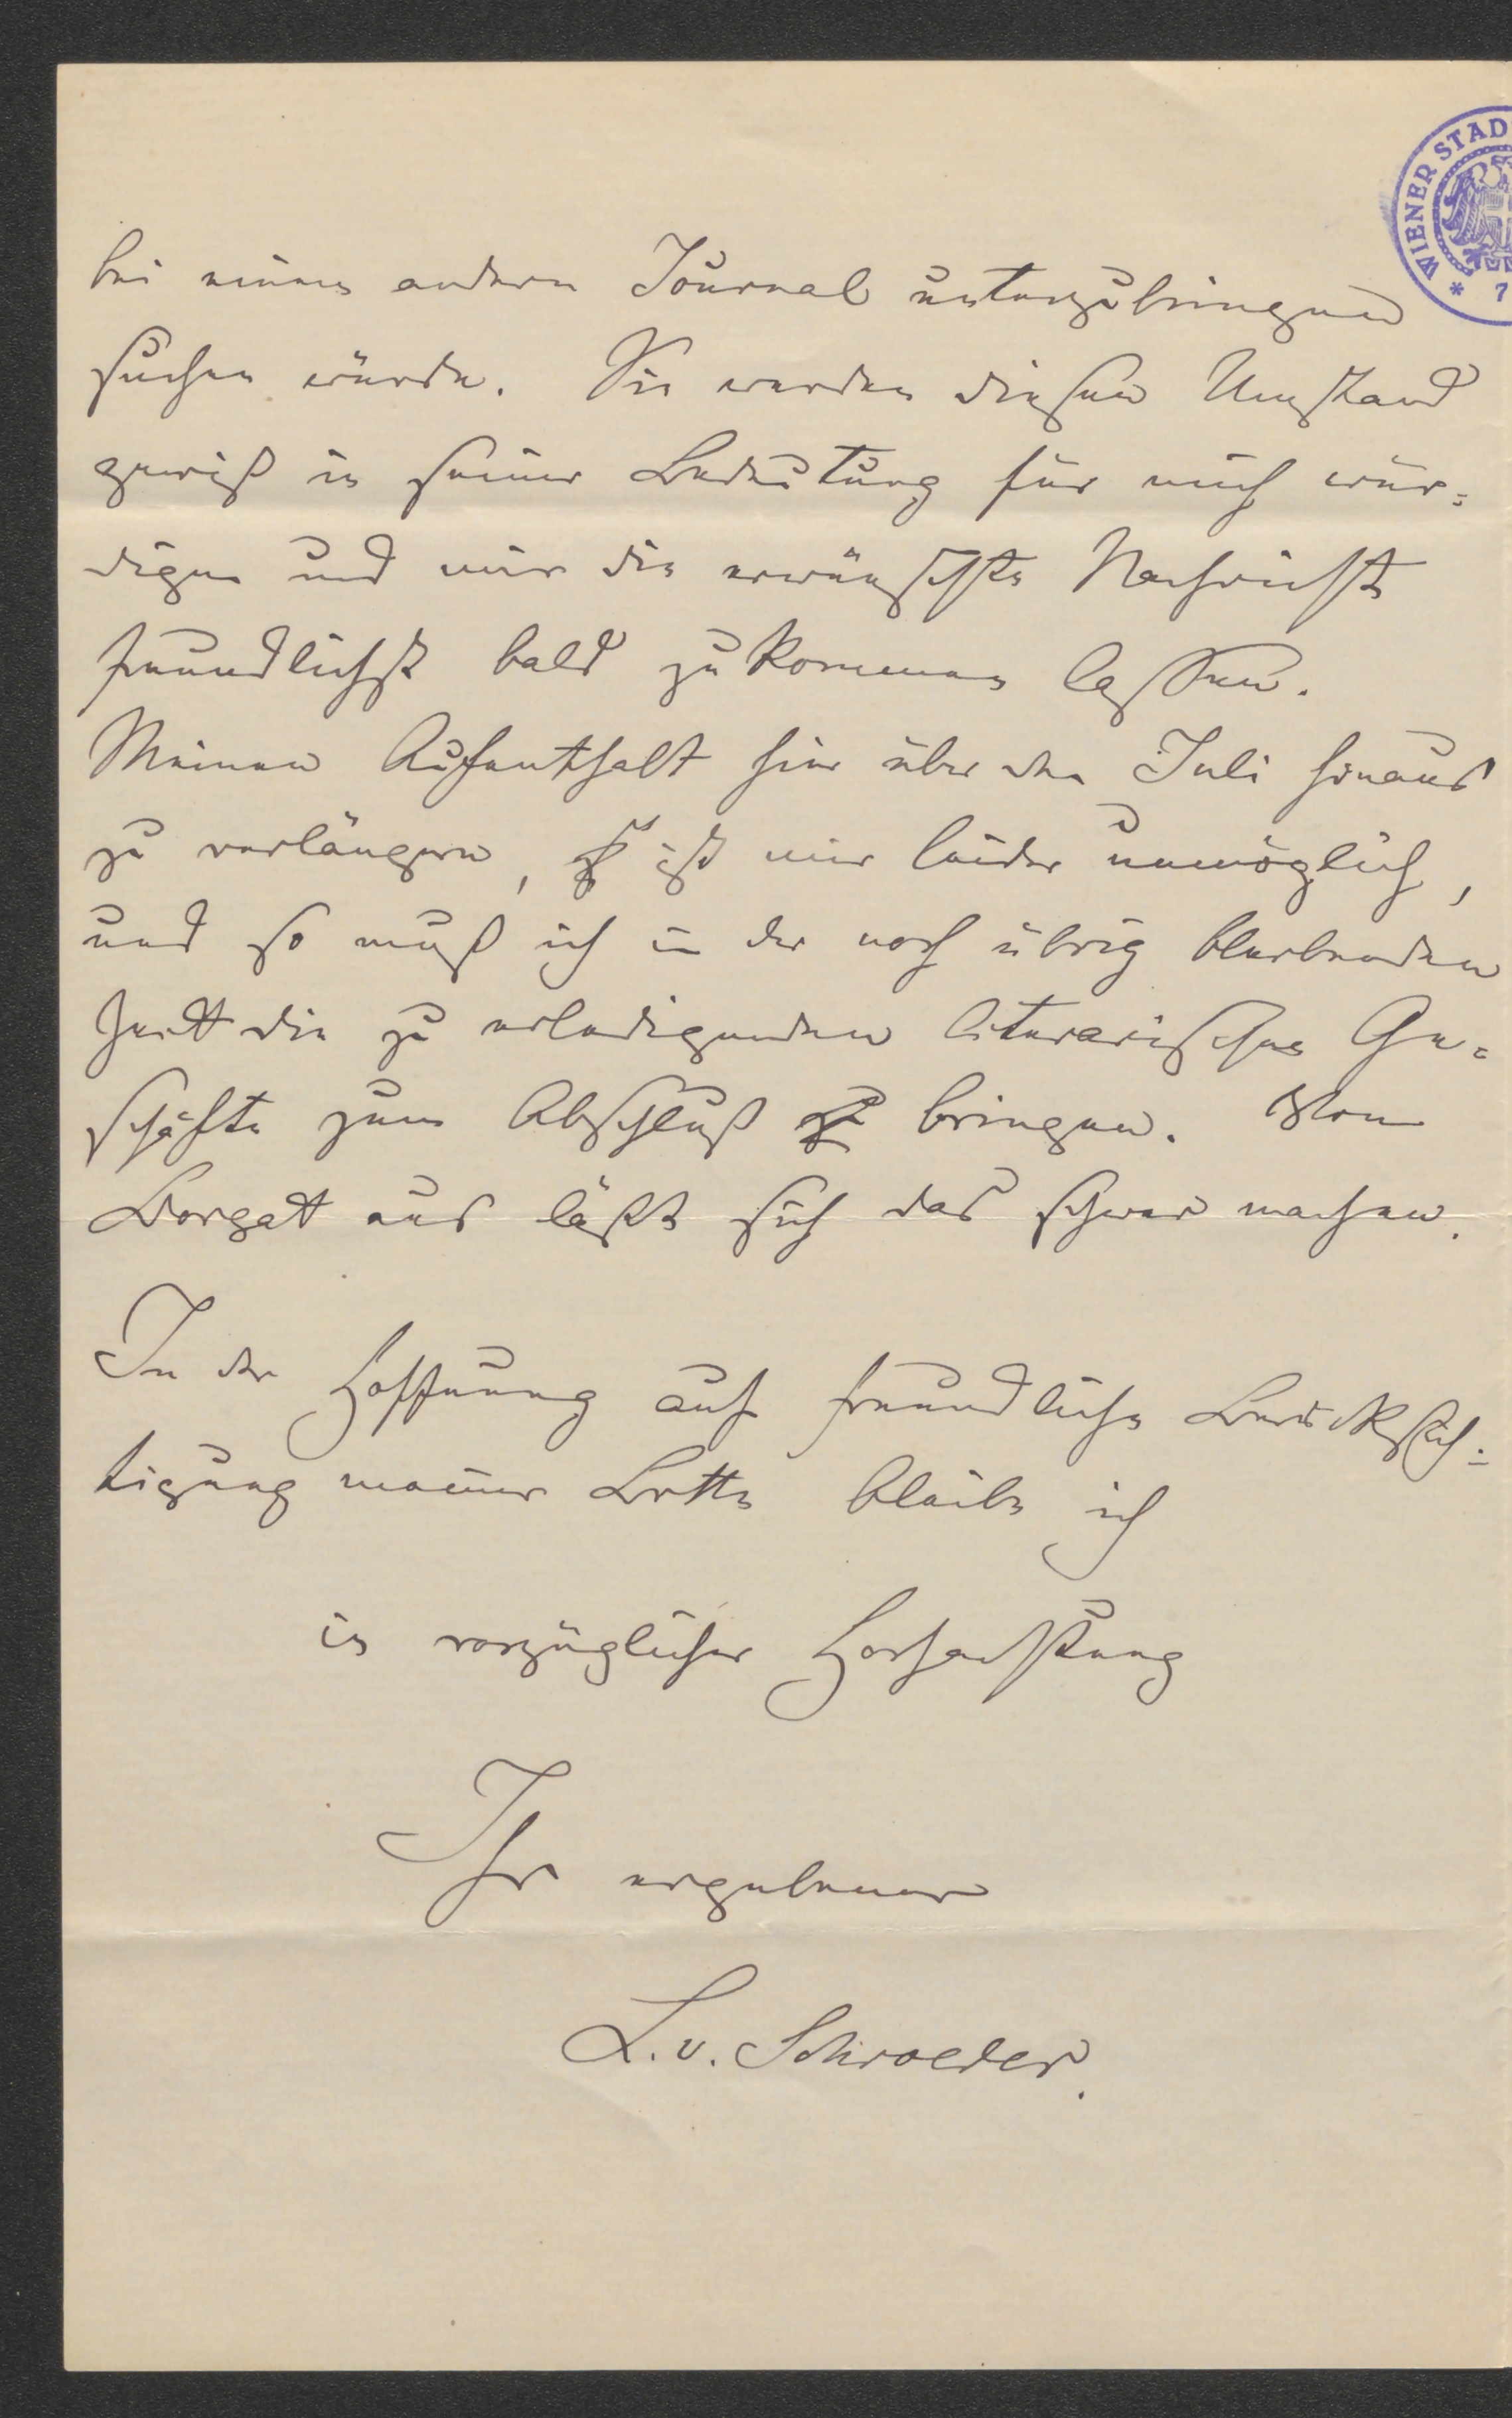 WIENER STAD
* 7
bei einem andern Journal unterzubringen
suchen würde. Sie werden diesen Umstand
gewiß in seiner Bedeutung für mich wür=
digen und mir die erwünschte Nachricht
freundlichst bald zukommen lassen.
Meinen Aufenthalt hier über den Juli hinaus
zu verlängern, ist mir leider unmöglich,
und so muß ich in der noch übrig bleibenden
Zeit die zu erledigenden literarischen Ge=
schäfte zum Abschluß zu bringen. Von
Dorpat aus läßt sich das schwer machen.
In der Hoffnung auf freundliche Berücksich=
tigung meiner Bitte bleibe ich
in vorzüglicher Hochachtung
Ihr ergebener
L. v. Schroeder.